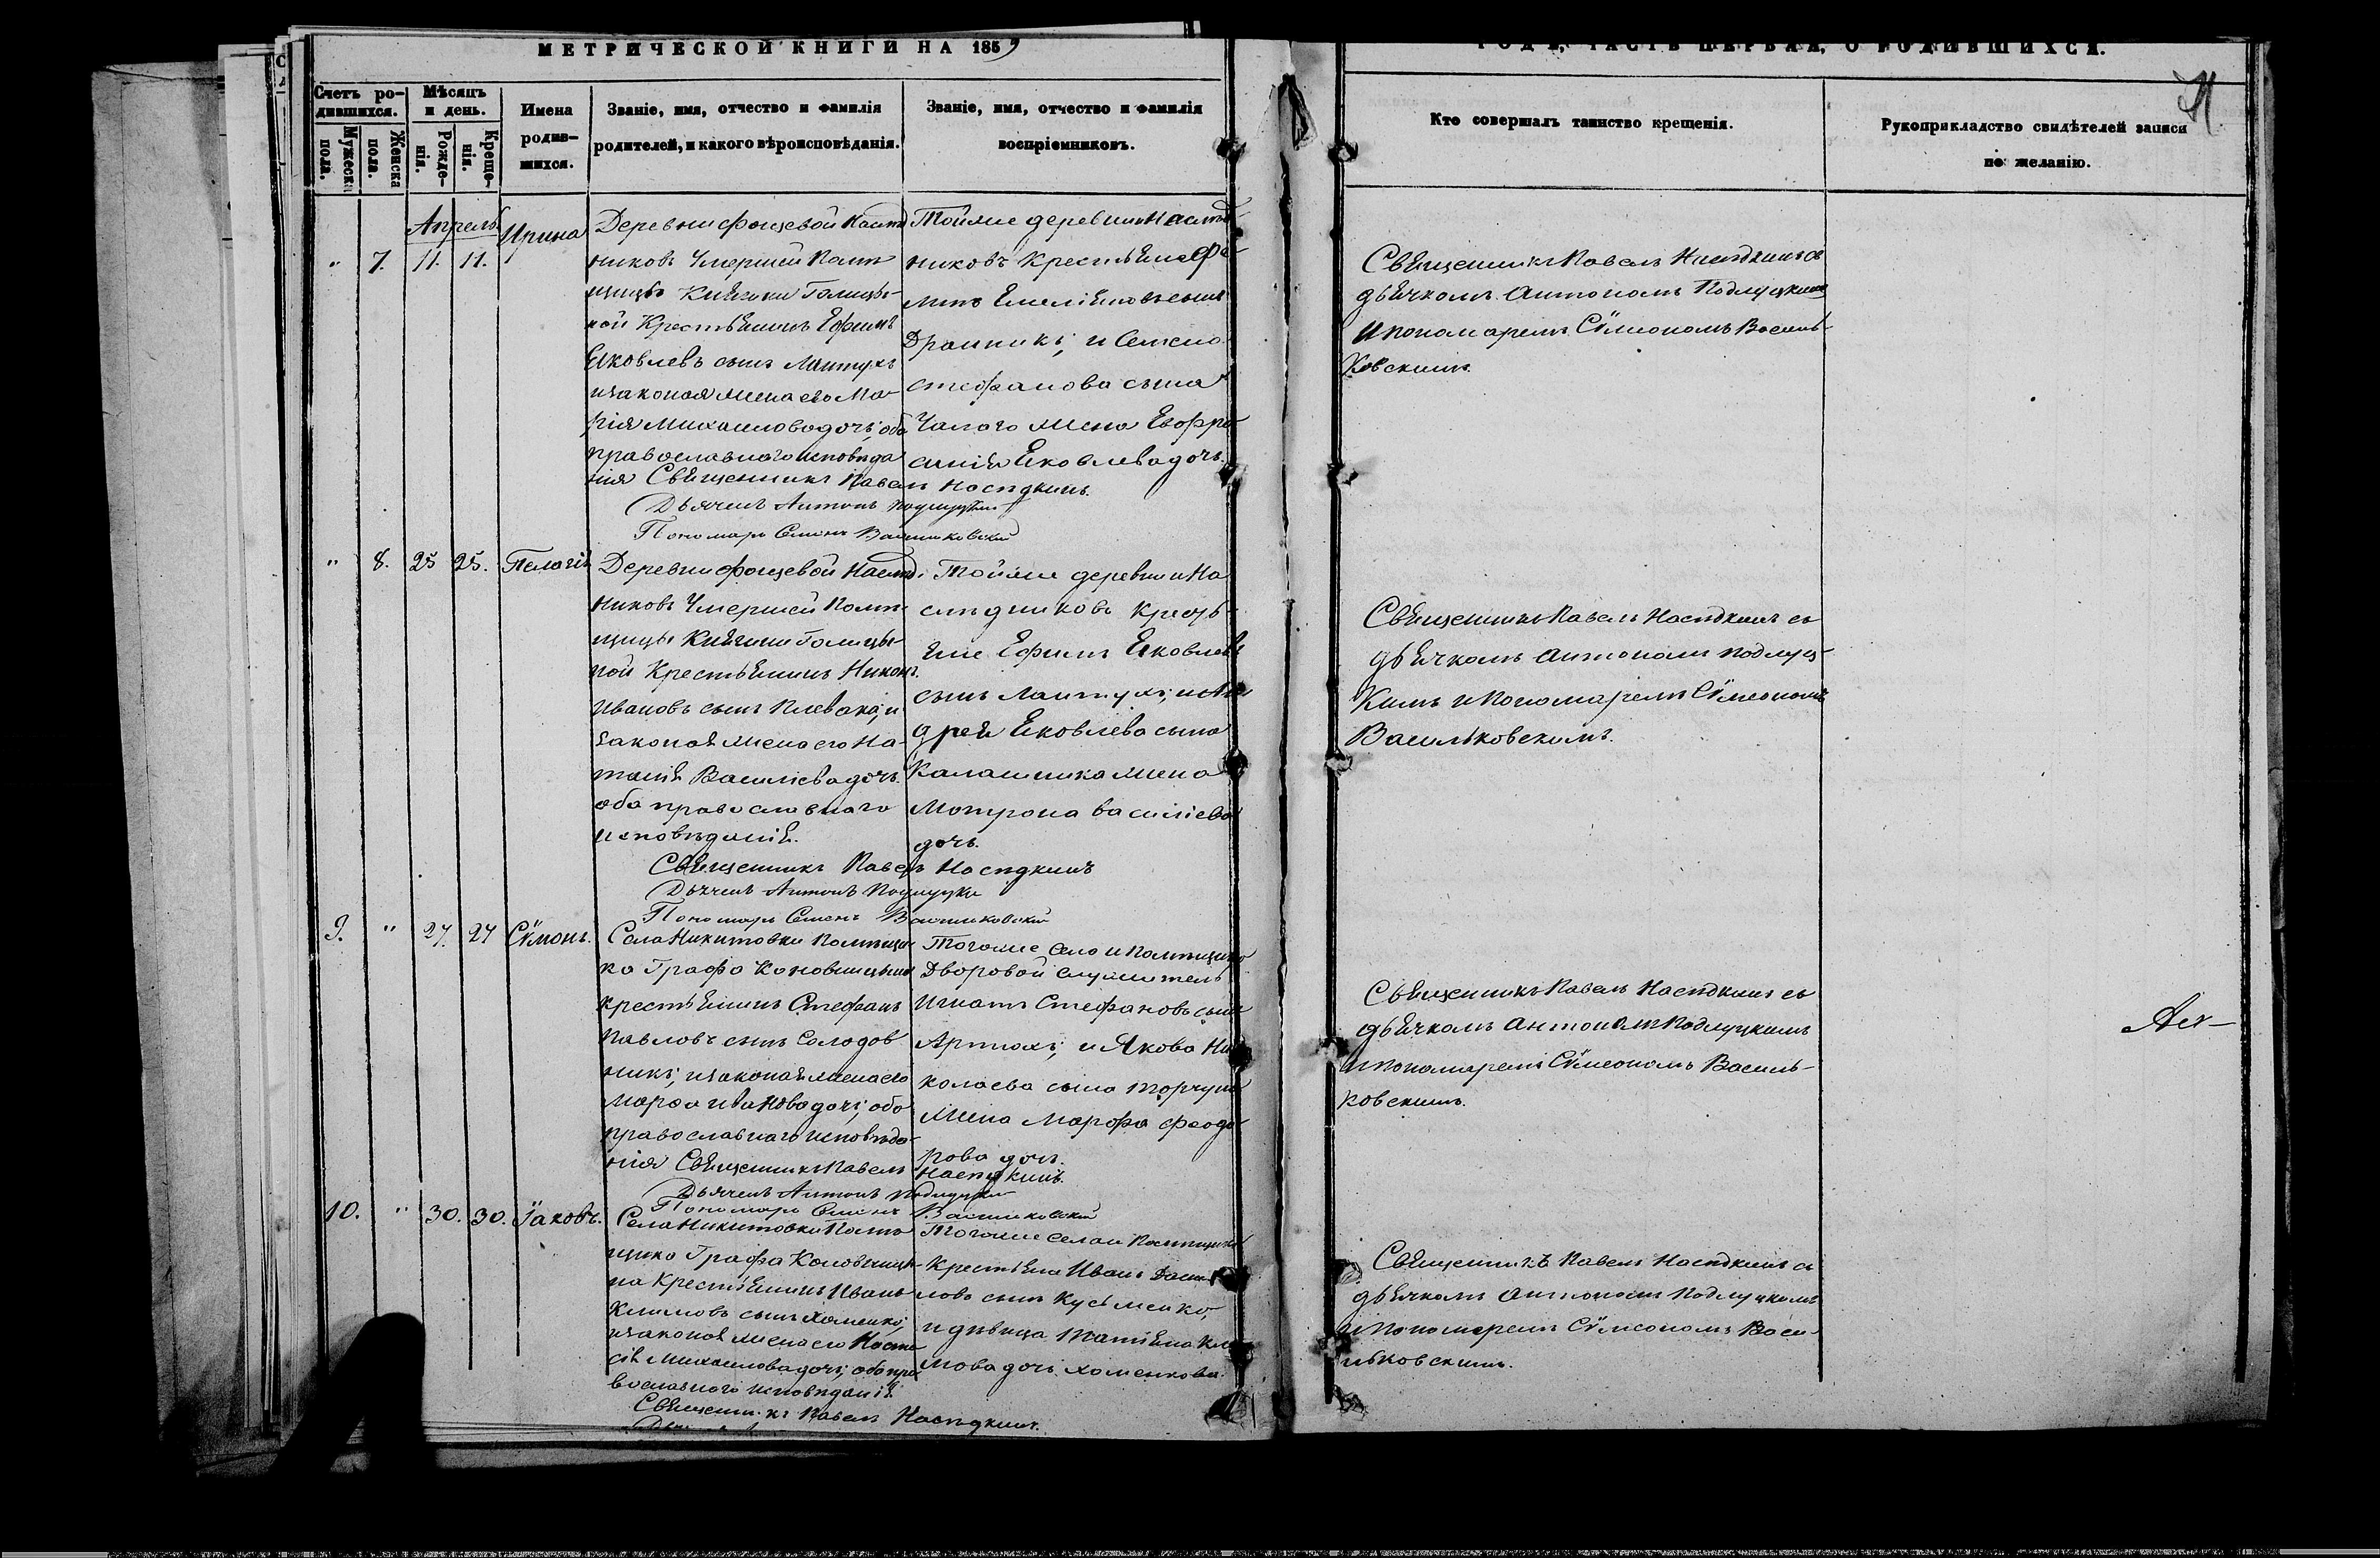 МЕТРИЧЕСКОЙ КНИГИ НА 1859
ГОДЪ, ЧАСТЬ ПЕРВАЯ, О РОДИВШИХСЯ.
Счетъ ро-
дившихся.
Мужеска
пола.
Женска
пола.
Мѣсяцъ
и день.
Рожде-
нія.
Креще-
нія.
Имена
родив-
шихся.
Званіе, имя, отчество и фамилія
родителей, и какого вѣроисповѣданія.
Званіе, имя, отчество и фамилія
воспріемниковъ.
Кто совершалъ таинство крещенія.
Рукоприкладство свидѣтелей записи
по желанію.
Апрель
" 7. 11. 11. Ирина
Деревни
никовъ Умершей Помѣ
щицы Княгини Голицы-
ной Крестьянинъ Ефимъ
Яковлевъ сынъ Лантухъ
изаконая жена его Ма-
рія Михаилова дочь; оба
православнаго исповѣда
нія Священникъ Павелъ Насѣдкинъ.
Дьячекъ Антонъ Подлуцкій
Пономарь Семенъ Васильковскій
Тойже деревни Наслѣд-
никовъ Крестьяне
сынъ
и Семена
Стефанова сына
Чалаго жена Евфро
синія Яковлева дочь.
Священникъ Павелъ Насѣдкинъ съ
дьячкомъ Антономъ Подлуцкимъ
и пономаремъ Сѵмеономъ Василь-
ковскимъ.
" 8. 25 25. Пелагія
Деревни Наслѣд-
никовъ Умершей Помѣ-
щицы Княгини Голицы-
ной Крестьянинъ Никонъ
Ивановъ сынъ Плевака; и
законая жена его На-
талія Василіева дочь.
оба православнаго
исповѣданія.
Священникъ Павелъ Насѣдкинъ
Дьячекъ Антонъ Подлуцкій
Пономарь Семенъ Васильковскій
Тойже деревни На
слѣдниковъ Кресть-
яне Ефимъ Яковлевъ
сынъ Лантухъ; и Ан
дрея Яковлева сына
Калашника жена
Мотрона Василіева
дочь.
Священникъ Павелъ Насѣдкинъ съ
дьячкомъ Антономъ Подлуц-
кимъ и Пономаремъ Сѵмеономъ
Васильковскимъ.
9. " 27. 27 Сѵмонъ.
Села Никитовки Помѣщи
ка Графа Коновницына
крестьянинъ Стефанъ
Павловъ сынъ Солодов
никъ; изаконая жена его
Марфа Иванова дочь; оба
православнаго исповѣда-
нія Священникъ Павелъ Насѣдкинъ.
Дьячекъ Антонъ Подлуцкій
Пономарь Семенъ Васильковскій
Тогоже Села и Помѣщика
Дворовой служитель
Игнатъ Стефановъ сынъ
и Якова Ни
колаева сына
жена Марфа Феодо-
рова дочь.
Священникъ Павелъ Насѣдкинъ съ
дьячкомъ Антономъ Подлуцкимъ
и пономаремъ Сѵмеономъ Василь-
ковскимъ.
10. " 30. 30. Іаковъ.
Села Никитовки Помѣ
щика Графа Коновницы-
на Крестьянинъ Иванъ
Климовъ сынъ Хоменко;
изаконая жена его Наста
сія Михаилова дочь; оба пра
вославнаго исповѣданія.
Священникъ Павелъ Насѣдкинъ.
Тогоже села и Помѣщика
Крестьяне Иванъ
сынъ Кузьменко,
и дѣвица Татіяна Кли
мова дочь Хоменкова.
Священникъ Павелъ Насѣдкинъ съ
дьячкомъ Антономъ Подлуцкимъ
и Пономаремъ Сѵмеономъ Васи-
льковскимъ.